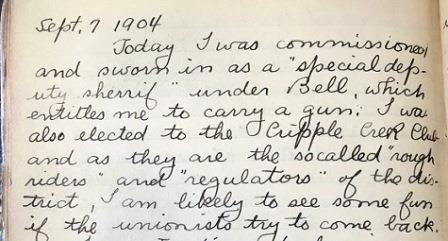 Sept. 7 1904
Today I was commissioned
and sworn in as a "special dep-
uty sherrif" under Bell, which
entitles me to carry a gun. I was
also elected to the Cripple Creek Club
and as they are the socalled "rough
riders" and "regulators" of the dis-
trict, I am likely to see some fun
if the unionists try to come back.